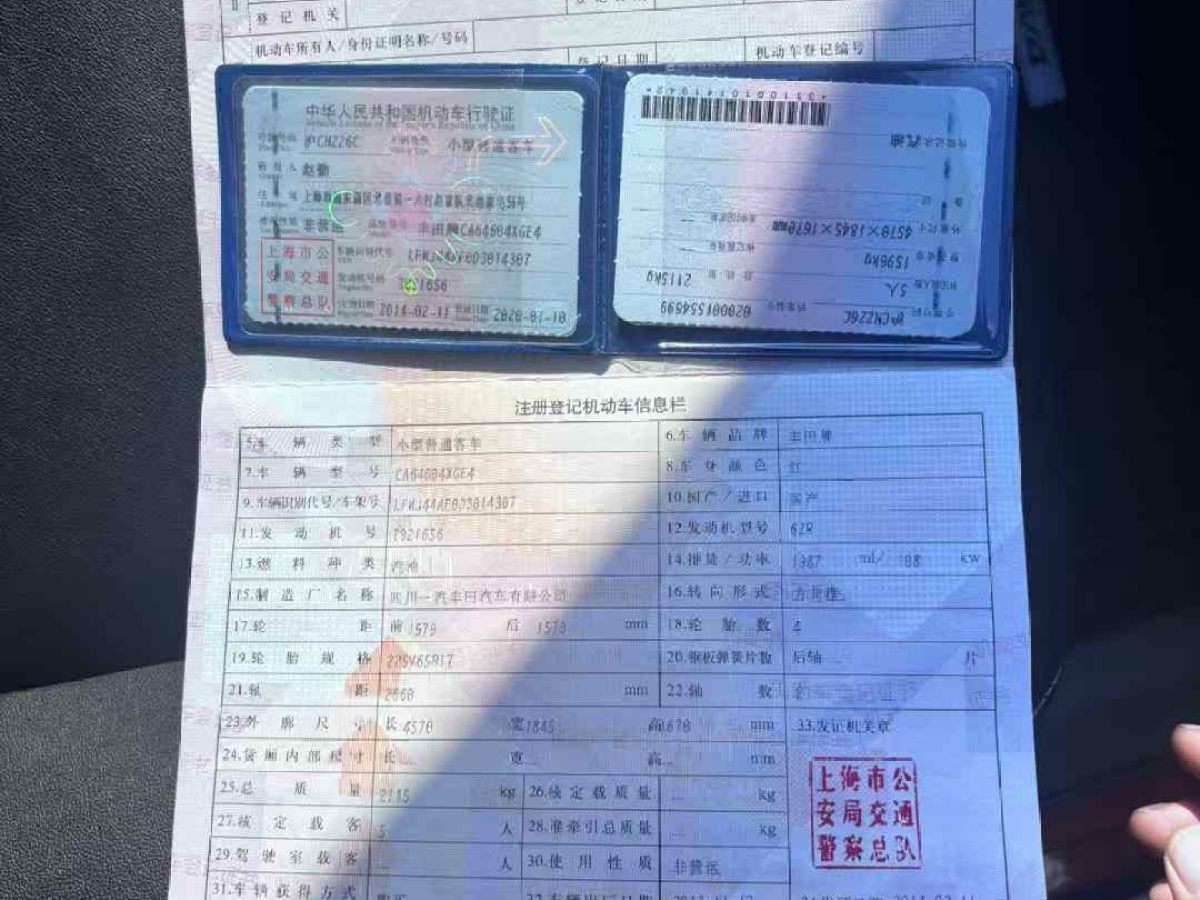 登记机关
机动车所有人/身份证明名称/号码
登记日期
机动车登记编号
中华人民共和国机动车行驶证
沪CMZ26C
小型普通客车
赵勤
非营运
丰田牌CA64604XGE4
2014-02-11
2020-01-10
上海市公
安局交通
警察总队
*3310010141942*
汽油
4570×1845×1670mm
1596kg
2115kg
5人
020001554699
沪CMZ26C
注册登记机动车信息栏
5.车辆类型 小型普通客车 6.车辆品牌 丰田牌
7.车辆型号 CA64604XGE4 8.车身颜色 红
9.车辆识别代号/车架号 10.国产/进口 国产
11.发动机号 I921656 12.发动机型号 6ZR
13.燃料种类 汽油 14.排量/功率 1987 ml/ 108 kw
15.制造厂名称 四川一汽丰田汽车有限公司 16.转向形式 方向盘
17.轮距 前 1570 后 1570 mm 18.轮胎数 4
19.轮胎规格 225/65R17 20.钢板弹簧片数 后轴 片
21.轴距 2660 mm 22.轴数 2
23.外廓尺寸 长 4570 宽 1845 高 1670 mm 33.发证机关章
24.货厢内部尺寸 长 宽 高 mm
25.总质量 2115 kg 26.核定载质量 kg
27.核定载客 5 人 28.准牵引总质量 kg
29.驾驶室载客 人 30.使用性质 非营运
上海市公
安局交通
警察总队
31.车辆获得方式 购买 32.车辆出厂日期